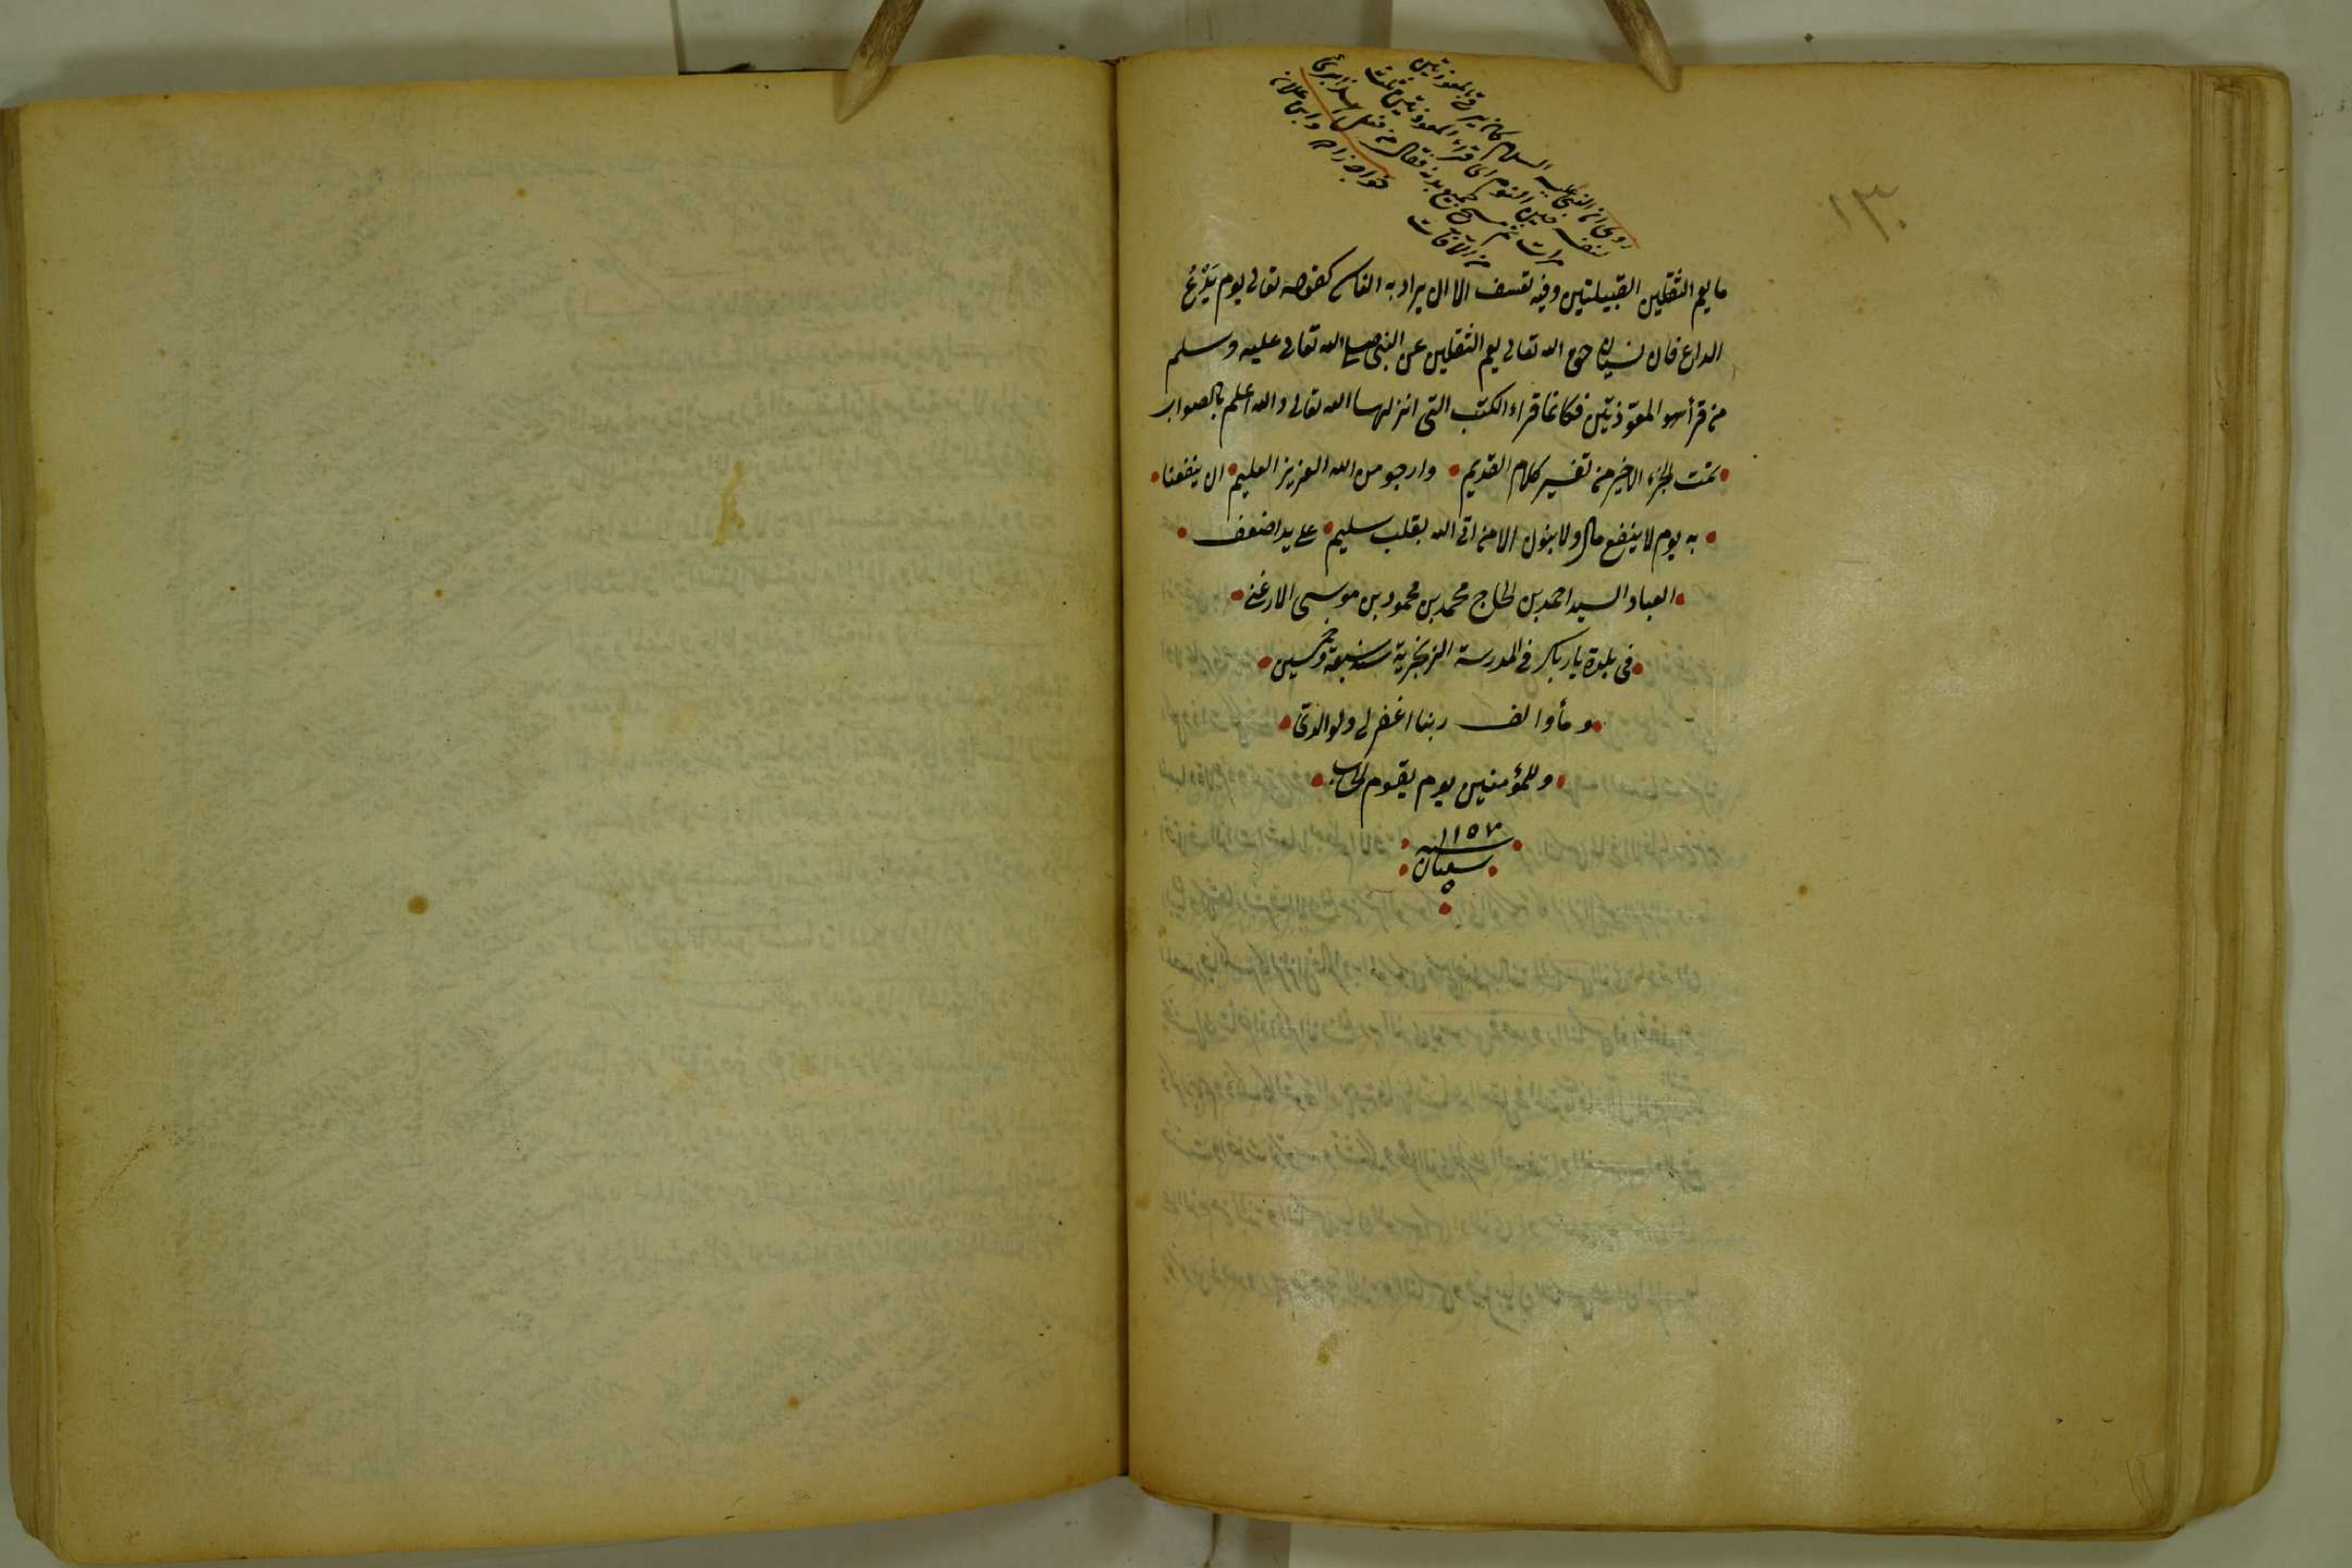 روى ان النبي عليه السلام كان يرقى بالمعوذتين
نفسه حين النوم اى قراء المعوذتين ثلث
مرات ثم مسح جميع بدنه فقال من فعل هذا برئ
من الآفات
خواجه زاده
١٣٠
ما يعم الثقلين القبيلتين وفيه تعسف الا ان يراد به الناسى كقوله تعالى يوم يَدْعُ
الداع فان نسيان حق الله تعالى يعم الثقلين عن النبى صلى الله تعالى عليه وسلم
من قرأ المعوّذتين فكانما قراء الكتب التى انزلها الله تعالى والله اعلم بالصواب
تمت الجزء الاخير من تفسير كلام القديم وارجو من الله العزيز العليم ان ينفعنا
به يوم لا ينفع مال ولا بنون الا من اتى الله بقلب سليم على يد اضعف
العباد السيد احمد بن الحاج محمد بن محمود بن موسى الارغنى
فى بلدة يارباكر فى المدرسة الزنجيرية سنه سبعة وخمسين
ومأ والف ربنا اغفر لى ولوالدىّ
وللمؤمنين يوم يقوم الحساب
سنه ١١٥٧